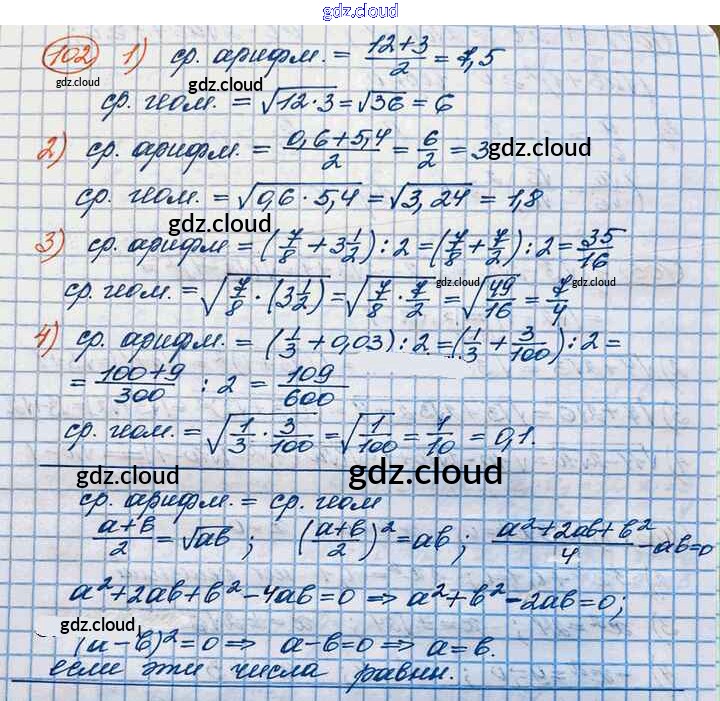 gdz.cloud
102 1) ср. арифм. = (12+3)/2 = 7,5
gdz.cloud gdz.cloud
ср. геом. = √(12·3) = √36 = 6
2) ср. арифм. = (0,6+5,4)/2 = 6/2 = 3 gdz.cloud
ср. геом. = √(0,6 · 5,4) = √3,24 = 1,8
gdz.cloud gdz.cloud
3) ср. арифм = (7/8 + 3 1/2) : 2 = (7/8 + 7/2) : 2 = 35/16
gdz.cloud gdz.cloud
ср. геом. = √(7/8 · (3 1/2)) = √(7/8 · 7/2) = √(49/16) = 7/4
4) ср. арифм. = (1/3 + 0,03) : 2 = (1/3 + 3/100) : 2 =
= (100+9)/300 : 2 = 109/600
ср. геом. = √(1/3 · 3/100) = √(1/100) = 1/10 = 0,1.
gdz.cloud gdz.cloud
ср. арифм. = ср. геом
(a+b)/2 = √ab ; ((a+b)/2)² = ab ; (a²+2ab+b²)/4 - ab=0
a²+2ab+b²-4ab=0 ⇒ a²+b²-2ab=0;
gdz.cloud gdz.cloud
(a-b)²=0 ⇒ a-b=0 ⇒ a=b.
если эти числа равны.